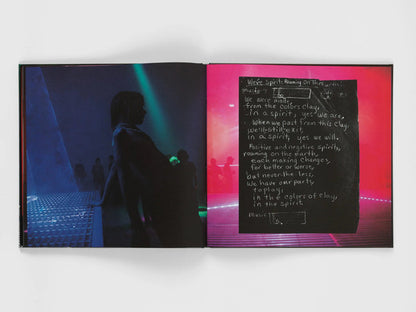 We're Spirit Roaming on This Earth
Music
We were made,
from the colors clay,
in a spirit, yes we are,
When we past from this clay,
we'll still exit,
in a spirit, yes we will,
Positive and negative spirits,
roaming on the earth,
each making changes,
for better or worse,
but never the less,
we have our parts
to play,
in the colors of clay,
in the spirit
Music